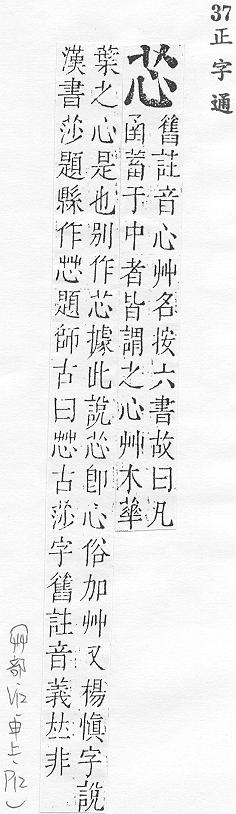 37正字通
芯
舊註音心艸名按六書故曰凡
函蓄于中者皆謂之心艸木華
葉之心是也別作芯據此說芯卽心俗加艸又楊愼字說
漢書莎題縣作芯題師古曰芯古莎字舊註音義𠀤非
(艸部 上、P12)